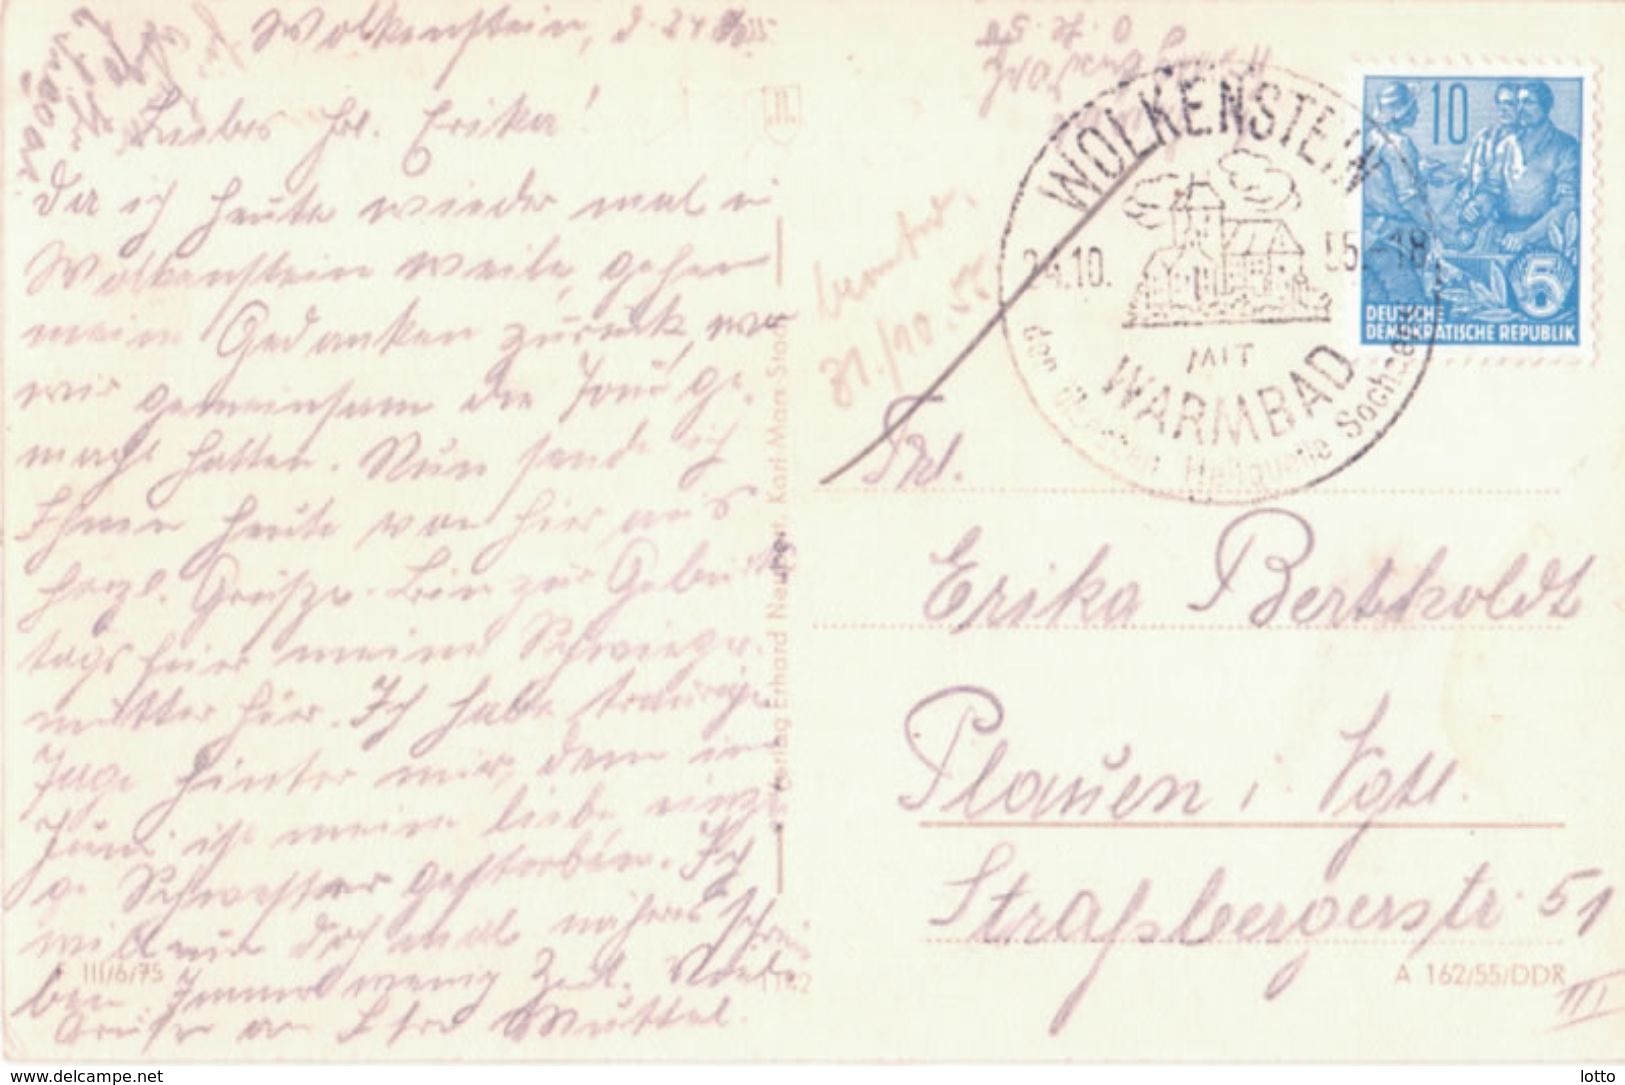 Wolkenstein, d. 24.
Liebes Frl. Erika!
Da ich heute wieder mal in
Wolkenstein weile, gehen
meine Gedanken zurück, wo
wir gemeinsam die Tour ge-
macht hatten. Nun sende ich
Ihnen heute von hier aus
herzl. Grüße. Bin zur Geburts
tagsfeier meiner Schwieger-
mutter hier. Ich habe traurige
Tage hinter mir, denn im
Juni ist meine liebe einzi
ge Schwester gestorben. Ich
will nur doch mal näheres schrei
ben. Immer wenig Zeit. Viele
Grüße an Ihre Muttel.
Verlag Erhard Neubert, Karl-Marx-Stadt
III/6/75
1142
beantw.
31./10.55
WOLKENSTEIN
24.10. 55.-18
MIT
WARMBAD
der Heilquelle Sachsens
10
5
DEUTSCHE
DEMOKRATISCHE REPUBLIK
Frl.
Erika Berthholdt
Plauen i. Vgtl.
Straßbergerstr. 51
III
A 162/55/DDR
www.delcampe.net
lotto